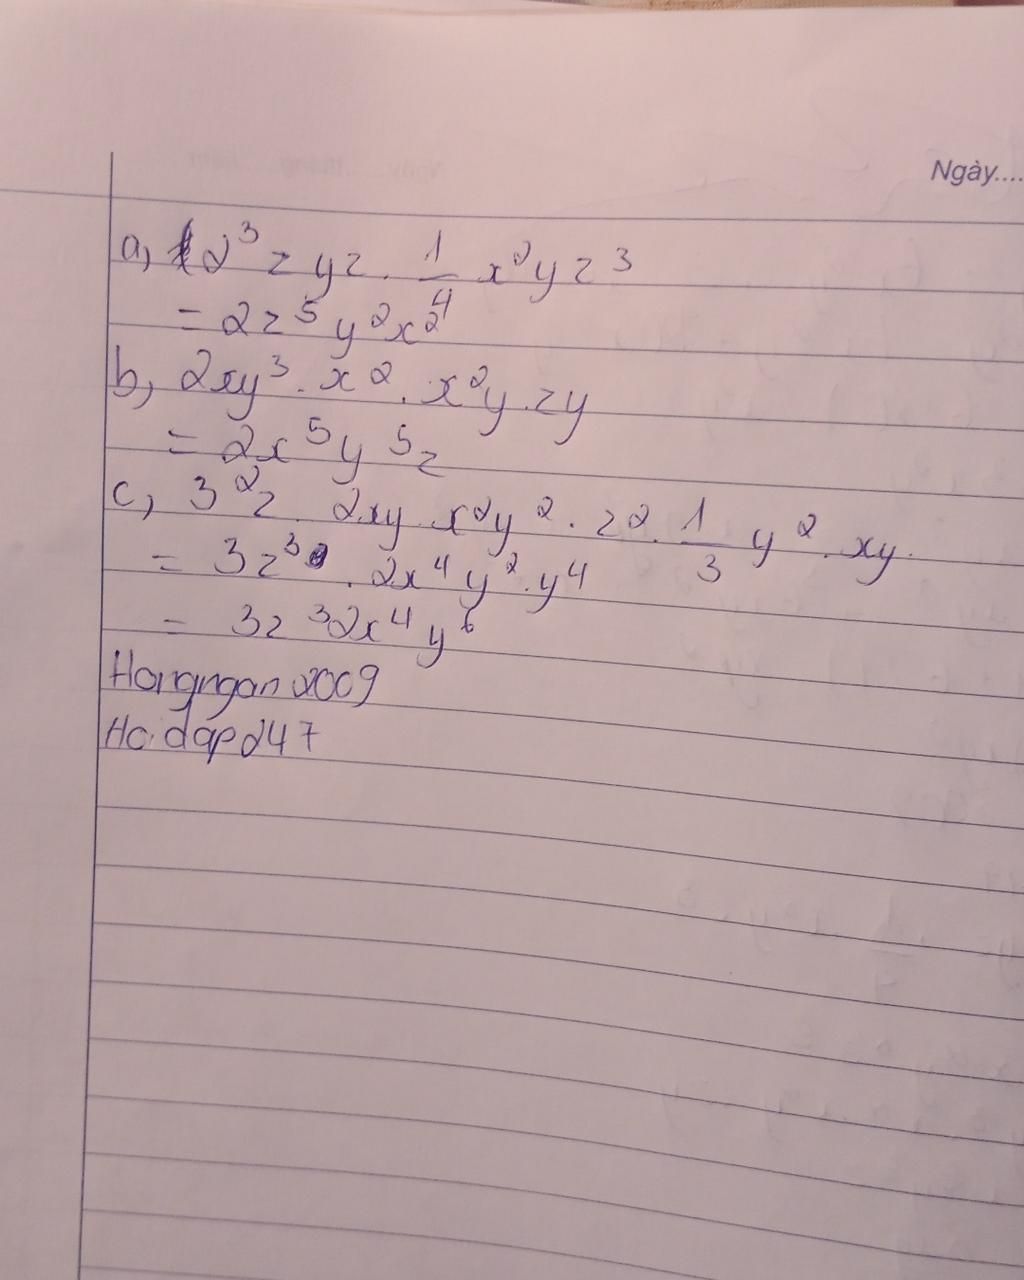 Ngày....
a, 2³ z yz . 1/4 x²yz³
= 2z⁵y²x²
b, 2xy³ . x² . x²y . zy
= 2x⁵y⁵z
c, 3²z . 2xy . x²y² . z² . 1/3 y² . xy
= 3z³ . 2x⁴y² . y⁴
= 3z³2x⁴y⁶
Hoangngan2009
Hoidap247